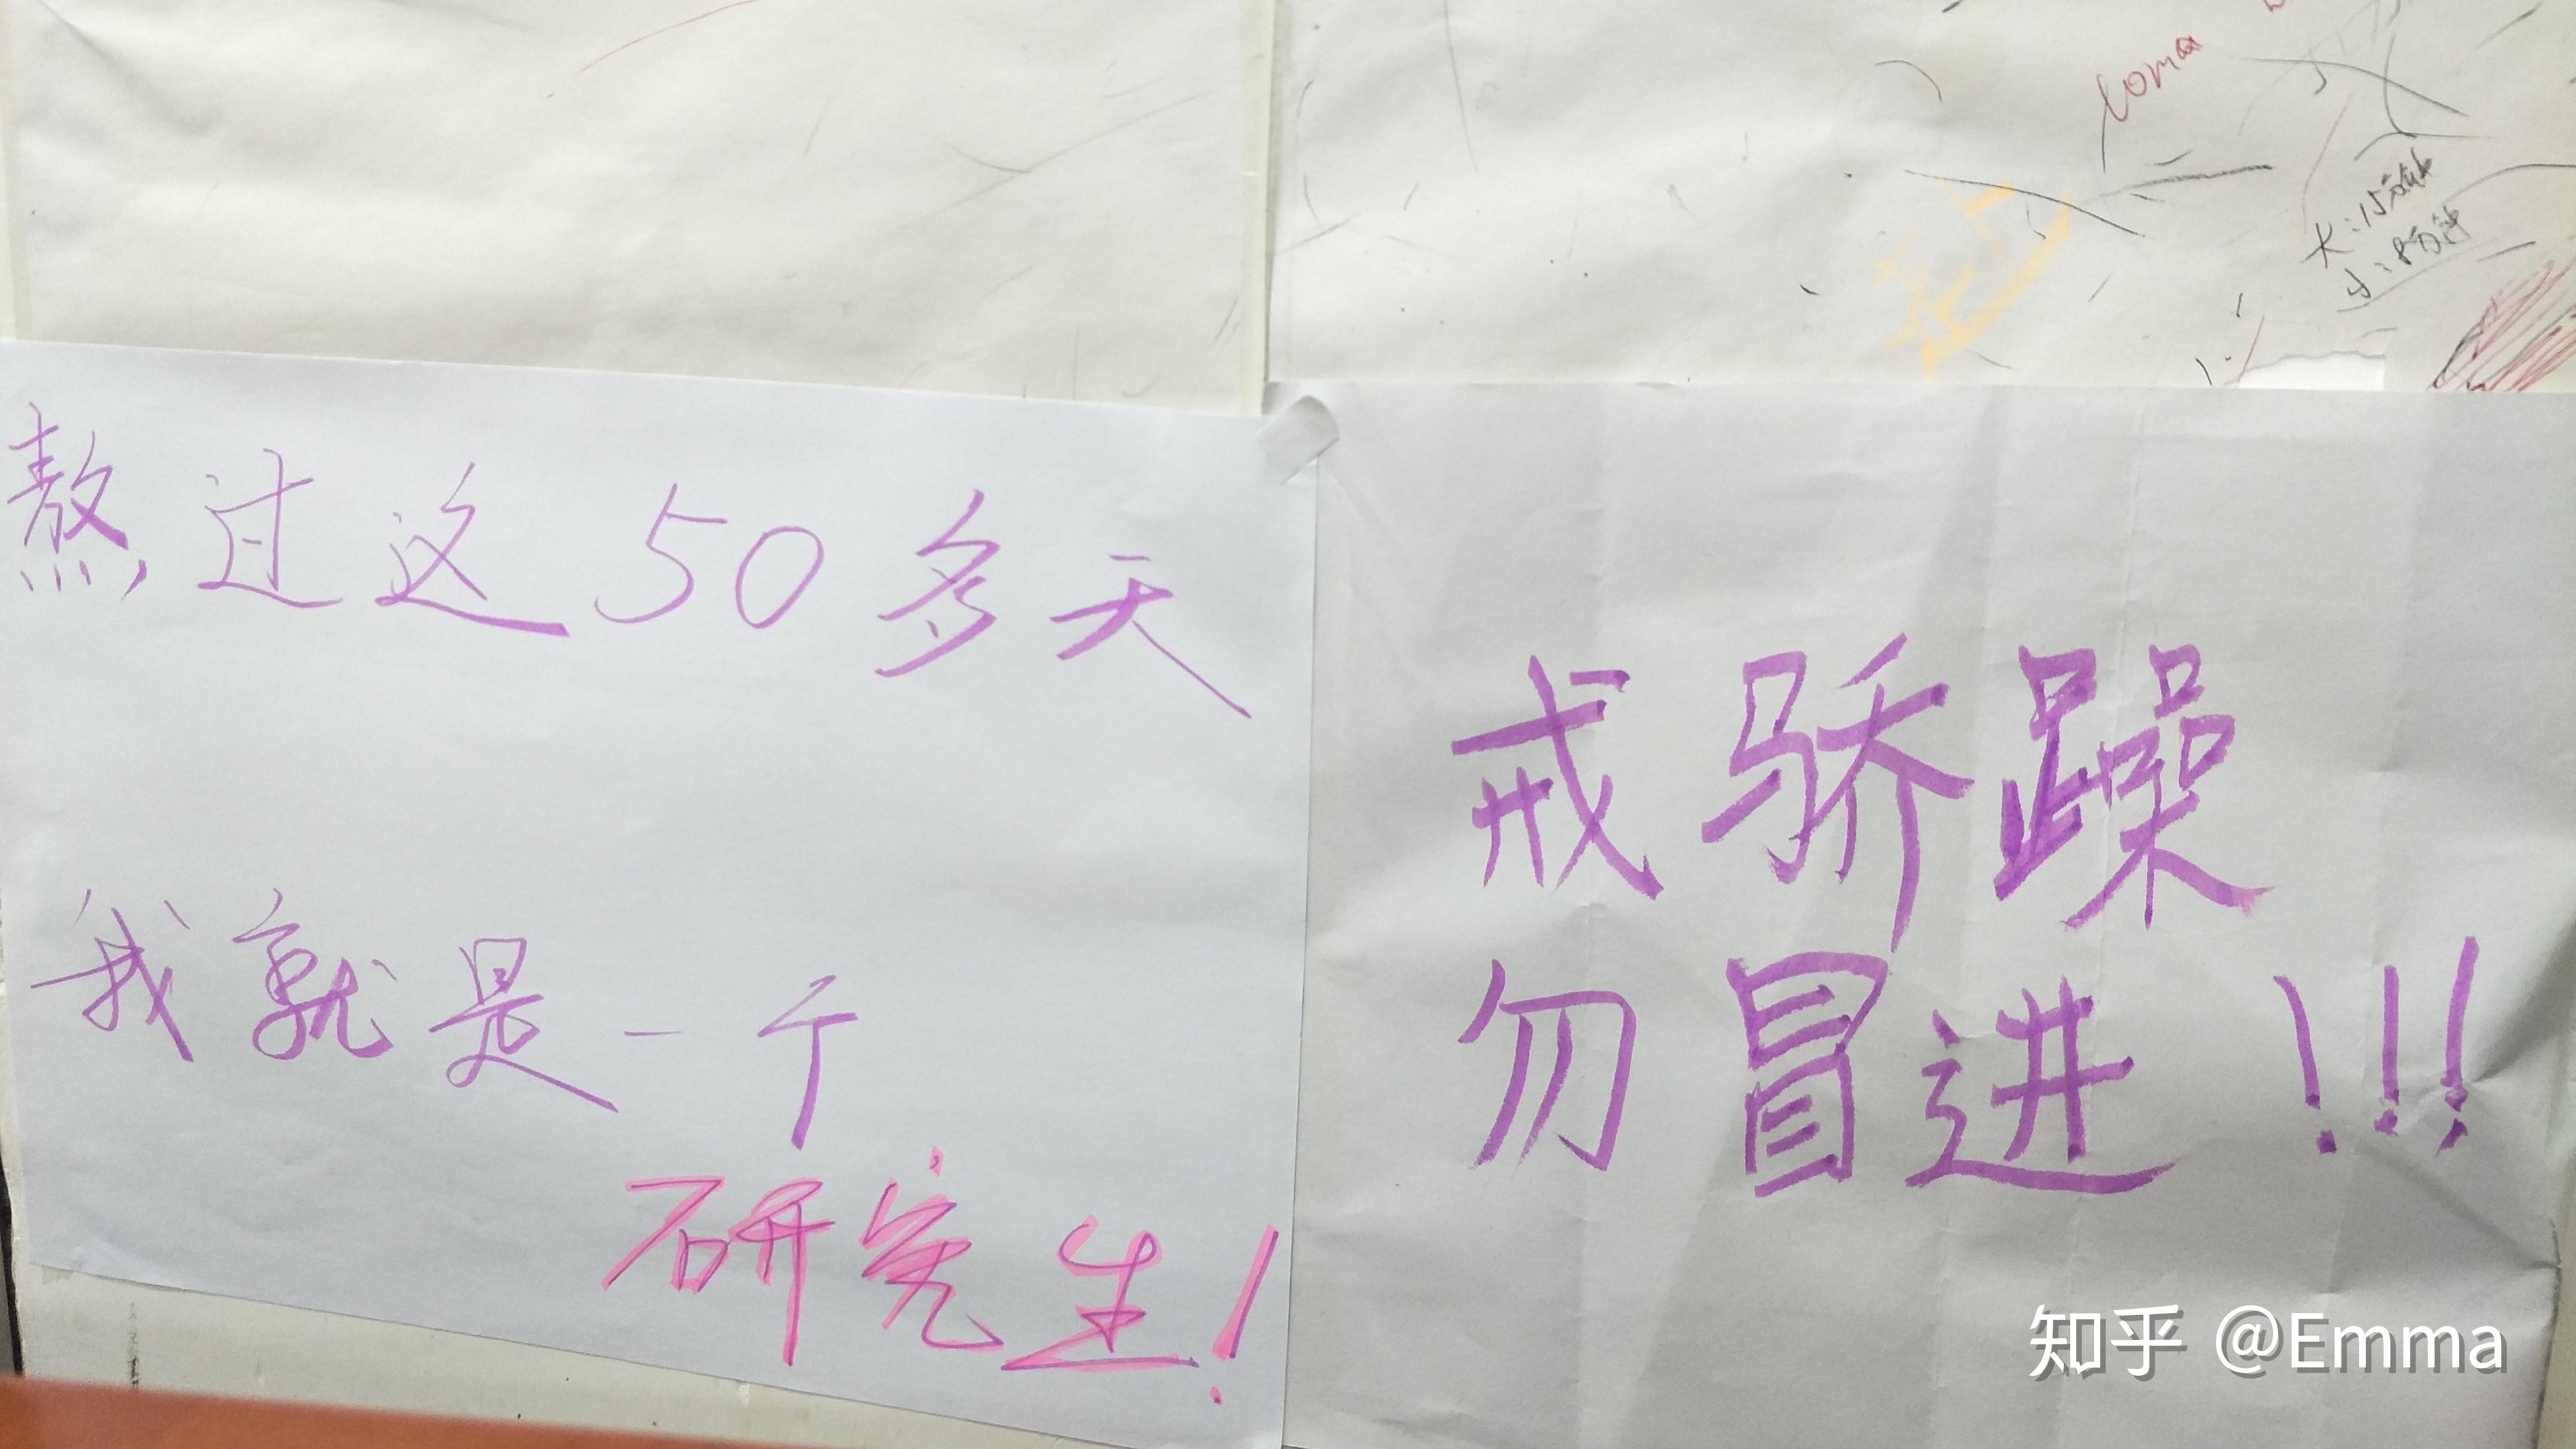 大:15分钟
小:8分钟
熬过这50多天
我就是一个
研究生!
戒骄躁
勿冒进!!!
知乎 @Emma